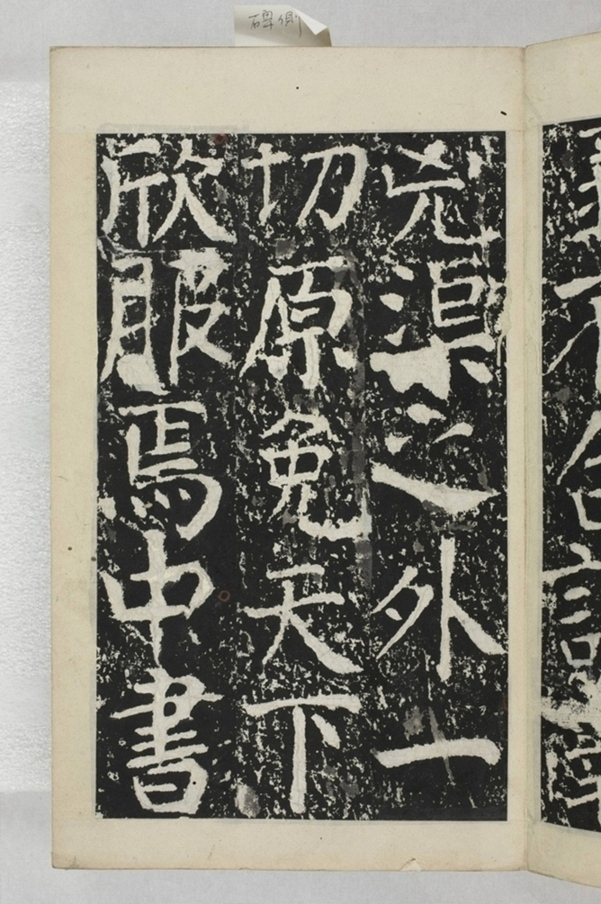 碑側
兇渠之外一
切原免天下
欣服焉中書